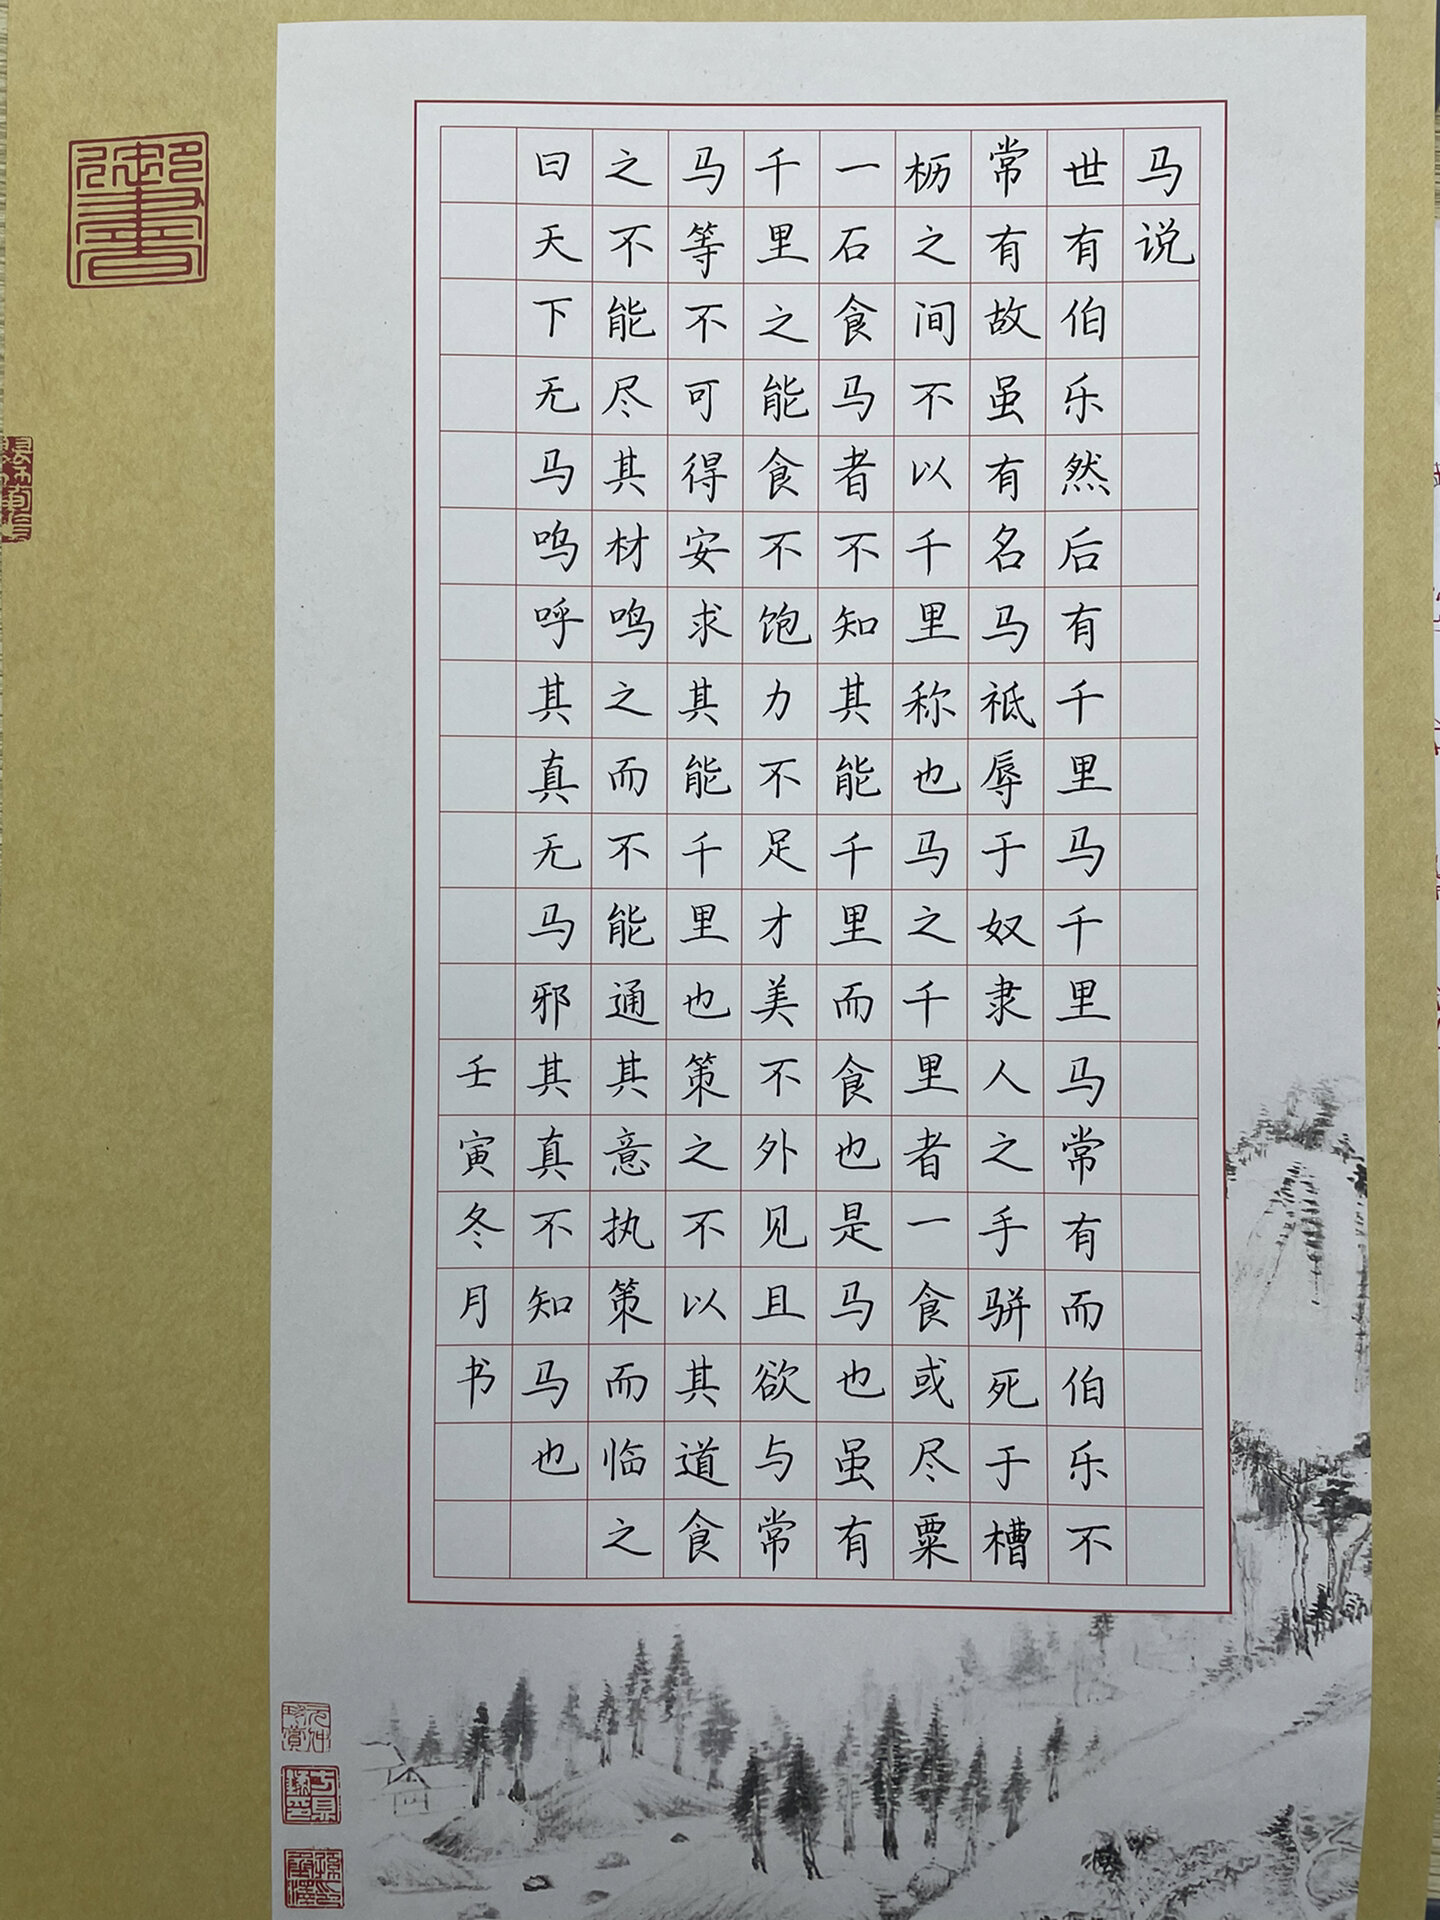 马说
世有伯乐然后有千里马千里马常有而伯乐不
常有故虽有名马祗辱于奴隶人之手骈死于槽
枥之间不以千里称也马之千里者一食或尽粟
一石食马者不知其能千里而食也是马也虽有
千里之能食不饱力不足才美不外见且欲与常
马等不可得安求其能千里也策之不以其道食
之不能尽其材鸣之而不能通其意执策而临之
曰天下无马呜呼其真无马邪其真不知马也
壬寅冬月书